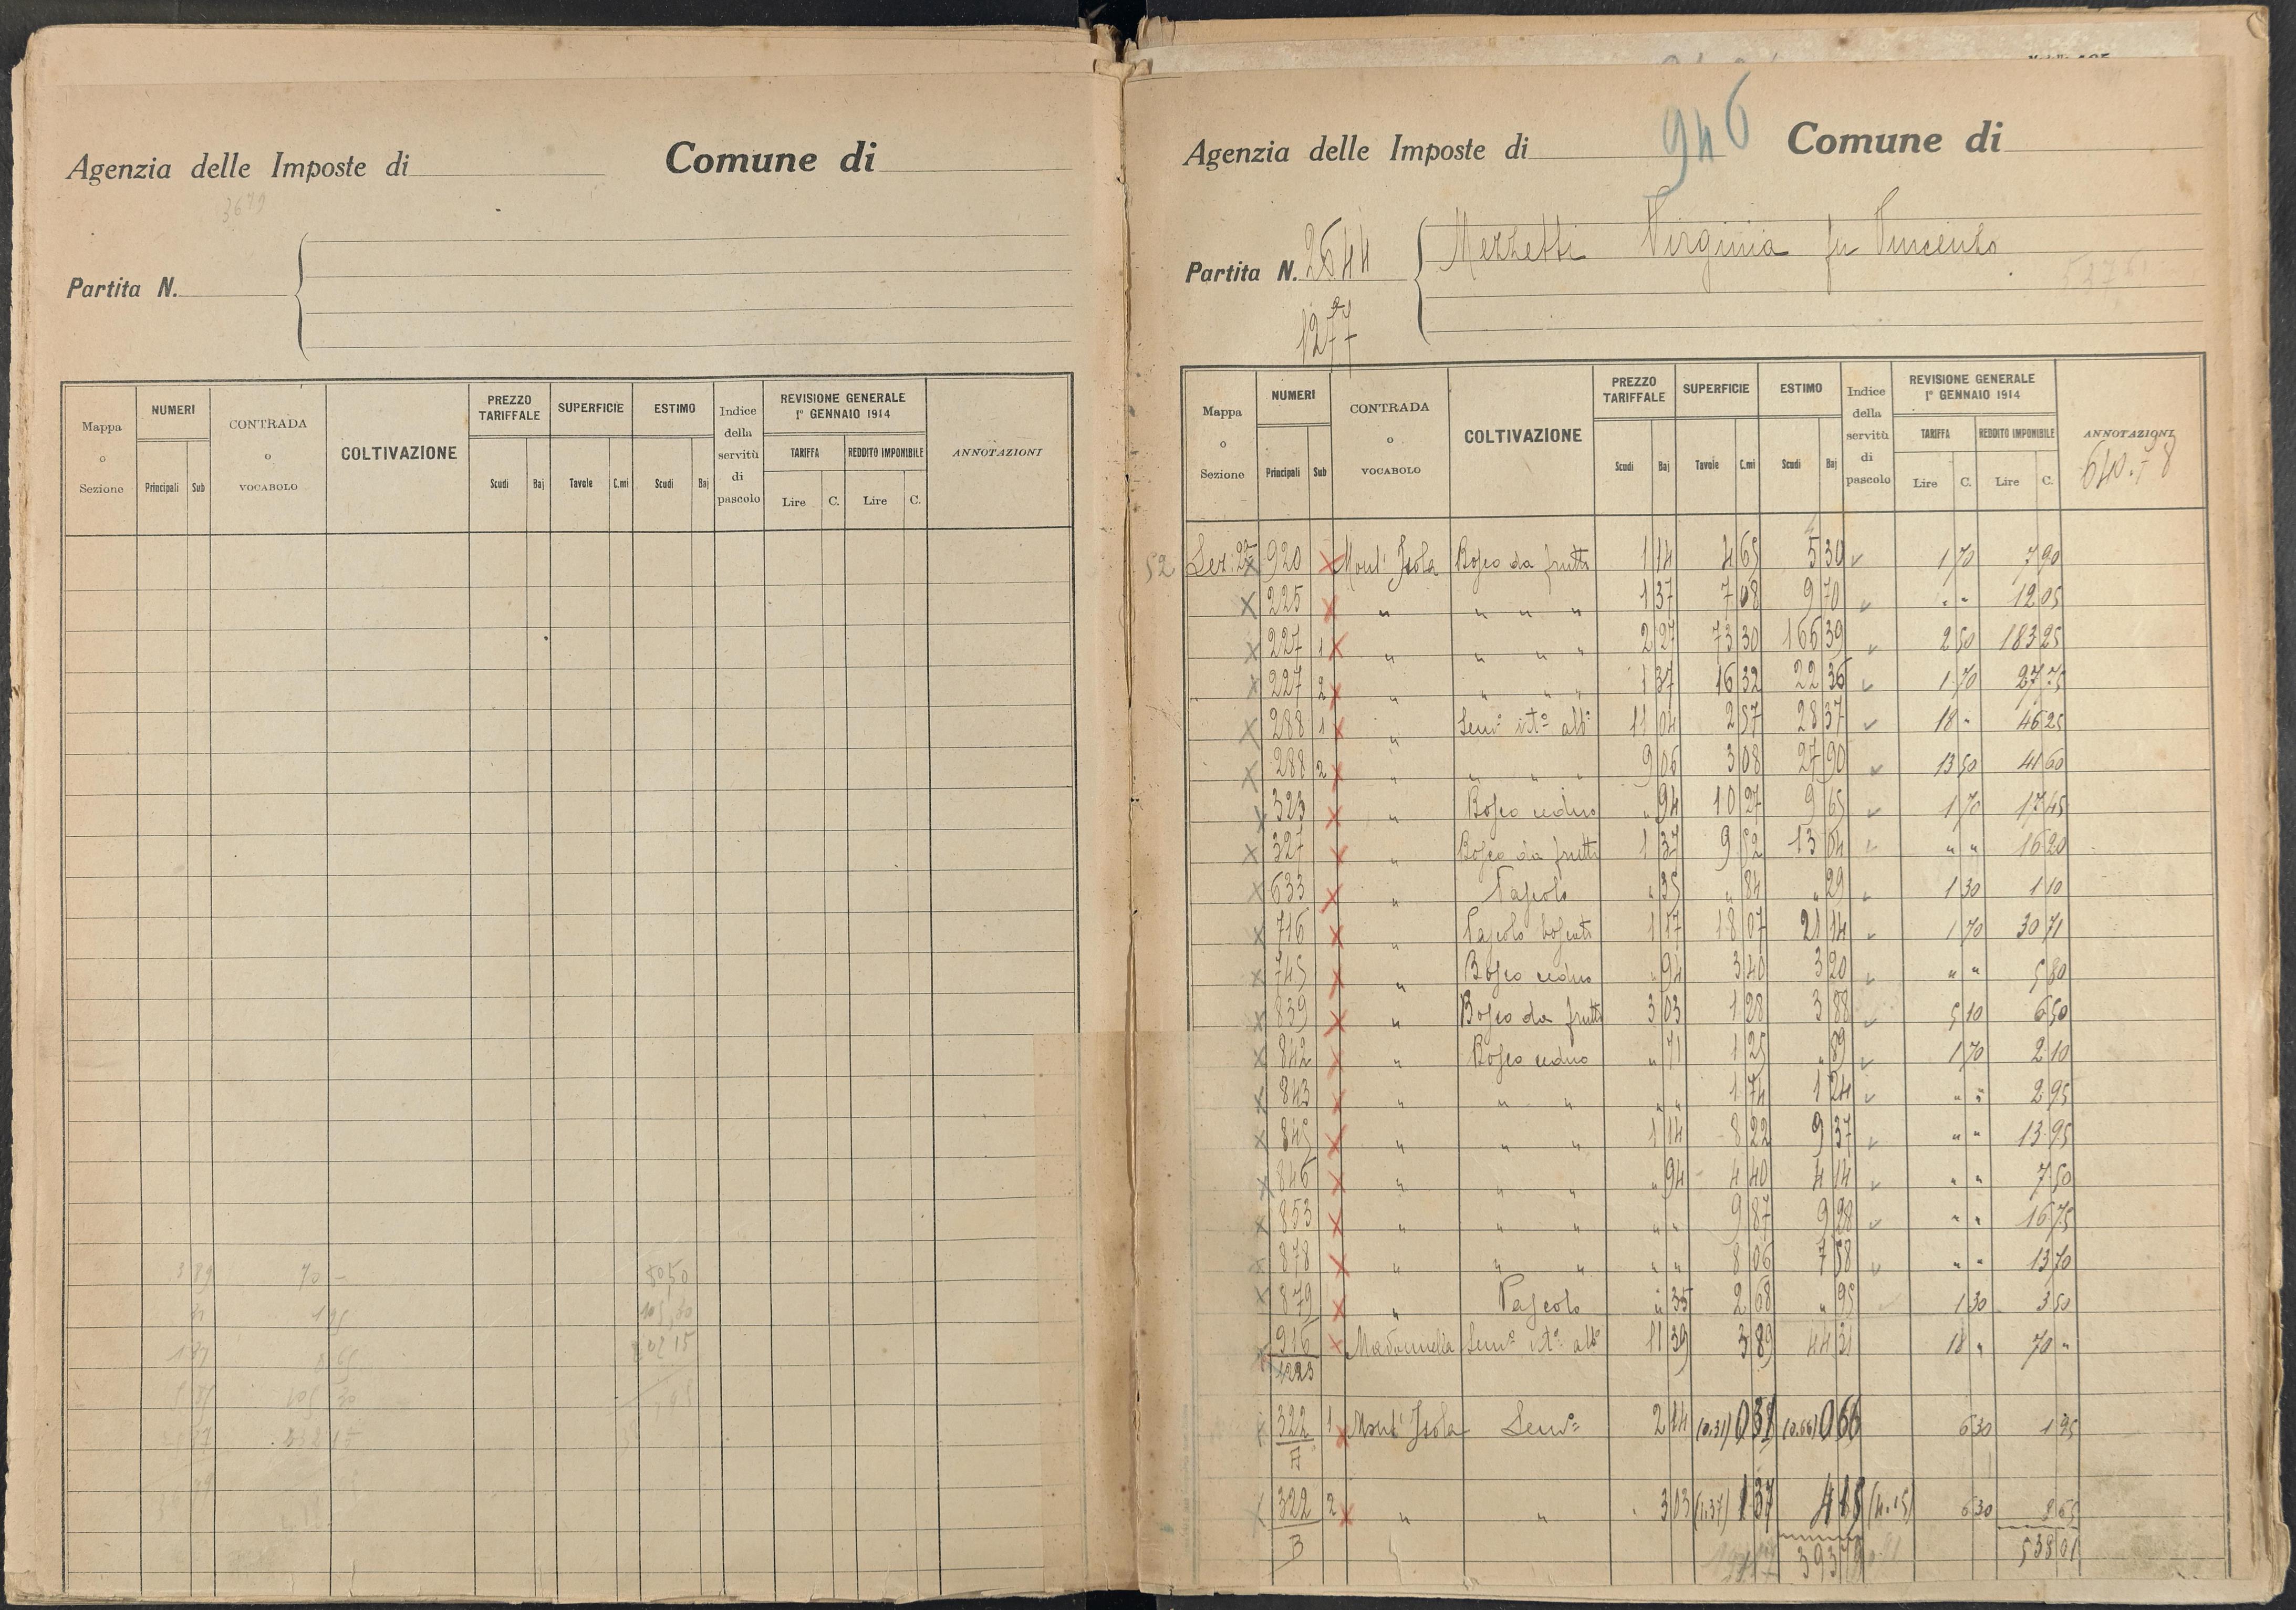 Agenzia delle Imposte di Comune di
3679
Partita N.
Mappa o Sezione NUMERI Principali Sub CONTRADA o VOCABOLO COLTIVAZIONE PREZZO TARIFFALE Scudi Baj SUPERFICIE Tavole C.mi ESTIMO Scudi Baj Indice della servitù di pascolo REVISIONE GENERALE 1° GENNAIO 1914 TARIFFA Lire C. REDDITO IMPONIBILE Lire C. ANNOTAZIONI
946
Agenzia delle Imposte di Comune di
Partita N. 2644 Mezzetti Virginia fu Vincenzo
1277
Mappa o Sezione NUMERI Principali Sub CONTRADA o VOCABOLO COLTIVAZIONE PREZZO TARIFFALE Scudi Baj SUPERFICIE Tavole C.mi ESTIMO Scudi Baj Indice della servitù di pascolo REVISIONE GENERALE 1° GENNAIO 1914 TARIFFA Lire C. REDDITO IMPONIBILE Lire C. ANNOTAZIONI
52 Sez: 920 Mont' Isola Bosco da frutti 1 14 4 65 5 30 1 70 7 90
225 " " " " 1 37 7 08 9 70 " " 12 05
227 1 " " " " 2 27 73 30 166 39 2 50 183 25
227 2 " " " " 1 37 16 32 22 36 1 70 27 75
288 1 " Sem° vit° alb° 11 04 2 57 28 37 18 " 46 25
288 2 " " " " 9 06 3 08 27 90 13 50 41 60
323 " Bosco ceduo " 94 10 27 9 65 1 70 17 45
327 " Bosco da frutti 1 37 9 52 13 04 " " 16 20
633 " Pascolo " 35 " 84 " 29 1 30 1 10
716 " Pascolo boscato 1 17 18 07 21 14 1 70 30 71
745 " Bosco ceduo " 94 3 40 3 20 " " 5 80
839 " Bosco da frutti 3 03 1 28 3 88 5 10 6 50
842 " Bosco ceduo " 71 1 25 " 89 1 70 2 10
843 " " " " " 1 74 1 24 " " 2 95
845 " " " 1 14 8 22 9 37 " " 13 95
846 " " " " 94 4 40 4 14 " " 7 50
853 " " " " " 9 87 9 28 " " 16 75
878 " " " " " 8 06 7 58 " " 13 70
879 " Pascolo " 35 2 68 " 95 1 30 3 50
916 Madonnella Sem° vit° alb° 11 39 3 89 44 31 18 " 70 "
1223
322 1 Mont' Isola Sem° 2 14 (0.31) 0 31 (0.66) 0 66 6 30 1 95
A
322 2 " " 3 03 (1.37) 1 37 4 15 (4.15) 6 30 8 65
B
538 01